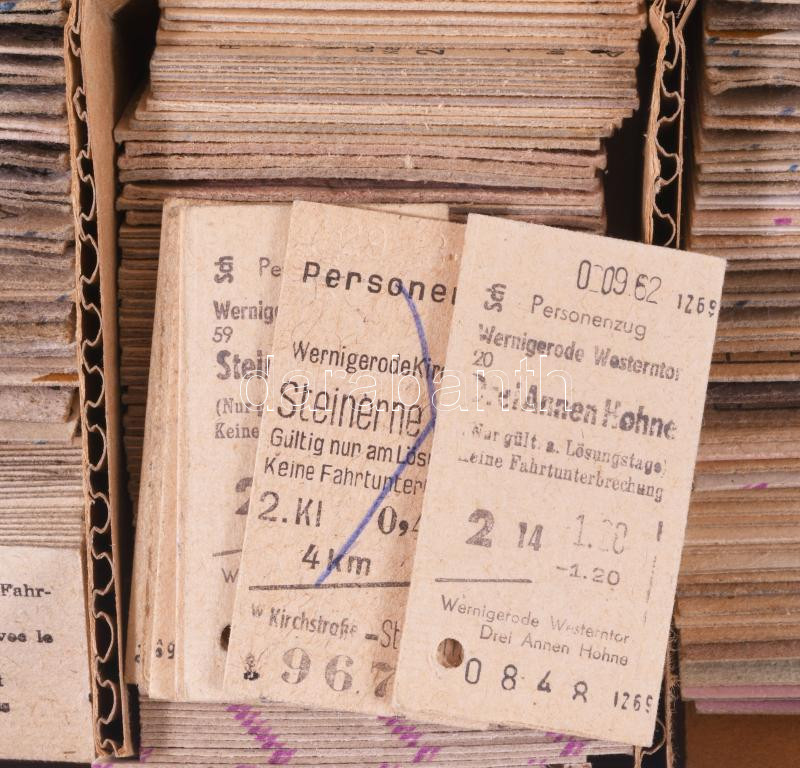 Sch Pe
Wernig
59
Stei
(Nur
Keine
2
W
Personen
WernigerodeKir
Steinerne
Gültig nur am Lös
Keine Fahrtunter
2.Kl 0,4
4km
w Kirchstraße -St
967
0 09.62 1269
Sch Personenzug
Wernigerode Westerntor
20
Drei Annen Hohne
Nur gült. a. Lösungstage)
Keine Fahrtunterbrechung
2 14 1.20
-1.20
Wernigerode Westerntor
Drei Annen Hohne
0848 1269
Fahr-
vec le
darabanth